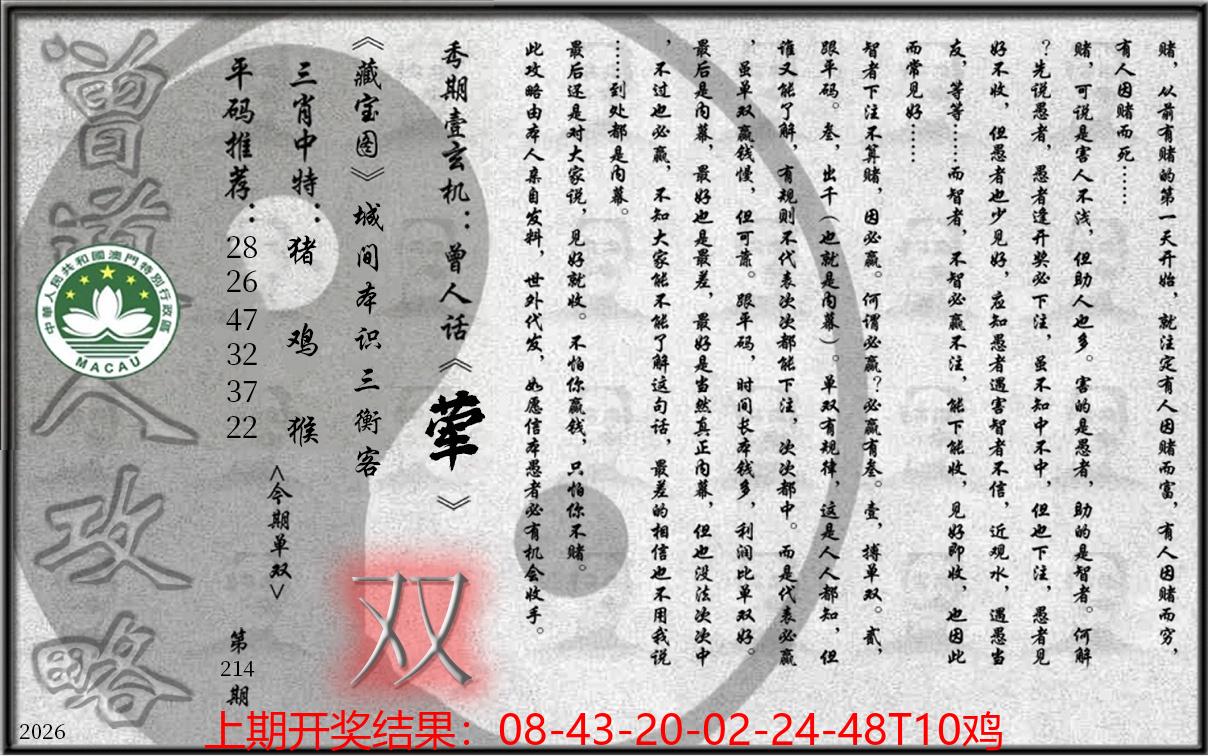 赌，从前有赌的第一天开始，就注定有人因赌而富，有人因赌而穷，
有人因赌而死……
赌，可说是害人不浅，但助人也多。害的是愚者，助的是智者。何解
？先说愚者，愚者逢开奖必下注，虽不知中不中，但也下注，愚者见
好不收，但愚者也少见好，应知愚者遇害智者不信，近观水，遇愚当
友，等等……而智者，不智必赢不注，能下能收，见好即收，也因此
而常见好……
智者下注不算赌，因必赢。何谓必赢？必赢有叁。壹，搏单双。贰，
跟平码。叁，出千（也就是内幕）。单双有规律，这是人人都知，但
谁又能了解，有规则不代表次次都能下注，次次都中。而是代表必赢
，虽单双赢钱慢，但可靠。跟平码，时间长本钱多，利润比单双好。
最后是内幕，最好也是最差，最好是当然真正内幕，但也没法次次中
，不过也必赢，不知大家能不能了解这句话，最差的相信也不用我说
……到处都是内幕。
最后还是对大家说，见好就收。不怕你赢钱，只怕你不赌。
此攻略由本人亲自发料，世外代发，如愿信本愚者必有机会收手。
秀期壹玄机：曾人话《荤》
《藏宝图》城间本识三衡客
双
三肖中特：猪 鸡 猴
<今期单双>
平码推荐：28 26 47 32 37 22
第214期
曾道人攻略
中華人民共和國澳門特別行政區
MACAU
2026
上期开奖结果：08-43-20-02-24-48T10鸡